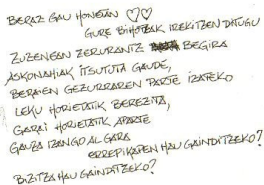 BERAZ GAU HONETAN ♡♡
GURE BIHOTZAK IREKITZEN DITUGU
ZUZENEAN ZERURANTZ BEGIRA
ASKONAHIAK ITSUTUTA GAUDE,
BERAIEN GEZURRAREN PARTE IZATEKO
LEKU HORIETATIK BEREZITA,
GARAI HORIETATIK APARTE
GAUZA IZANGO AL GARA
ERREPIKAPEN HAU GAINDITZEKO?
BIZITZA HAU GAINDITZEKO?